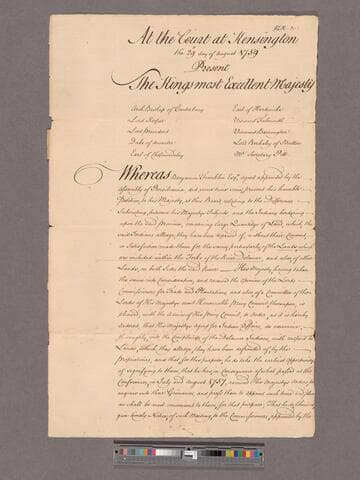 At the Court at Kensington
the 29 day of August 1759
Present
The Kings most Excellent Majesty
Arch Bishop of Canterbury Earl of Hardwicke
Lord Keeper Viscount Falmouth
Lord President Viscount Barrington
Duke of Lord Berkeley of Stratton
Earl of Cholmondeley Mr. Secretary Pitt
Whereas Benjamin Franklin Esqr. Agent appointed by the
Assembly of Pensilvania, did some time since, present his humble
Petition to his Majesty, at this Board, relating to the Differences
Subsisting between his Majestys Subjects and the Indians bordering
upon the said Province, concerning large Quantitys of Land, which the
said Indians alledge, they have been deprived of, without their Consent,
or Satisfaction made them for the same, particularly of the Lands which
are included within the Forks of the River Delaware, and also of other
Lands, on both Sides the said River. His Majesty having taken
the same into Consideration, and received the Opinion of the Lords
Commissioners for Trade and Plantations, and also of a Committee of the
Lords of His Majestys most Honourable Privy Council thereupon, is
pleased, with the Advice of His Privy Council, to order, as it is hereby
Ordered, that His Majestys Agent for Indian Affairs, do examine
thoroughly into the Complaints of the Delaware Indians, with respect to
Lands, which they alledge they have been defrauded of by the
Proprietaries, and that for this purpose, he do take the earliest Opportunity
of signifying to them that he has, in Consequence of what passed at the
Conferences, in July and August 1757, received His Majestys Orders, to
enquire into their Grievances, and press them to appoint such time and place
as shall be most convenient to them for that purpose; That he do likewise
give timely Notice of such Meeting to the Commissioners, appointed by the